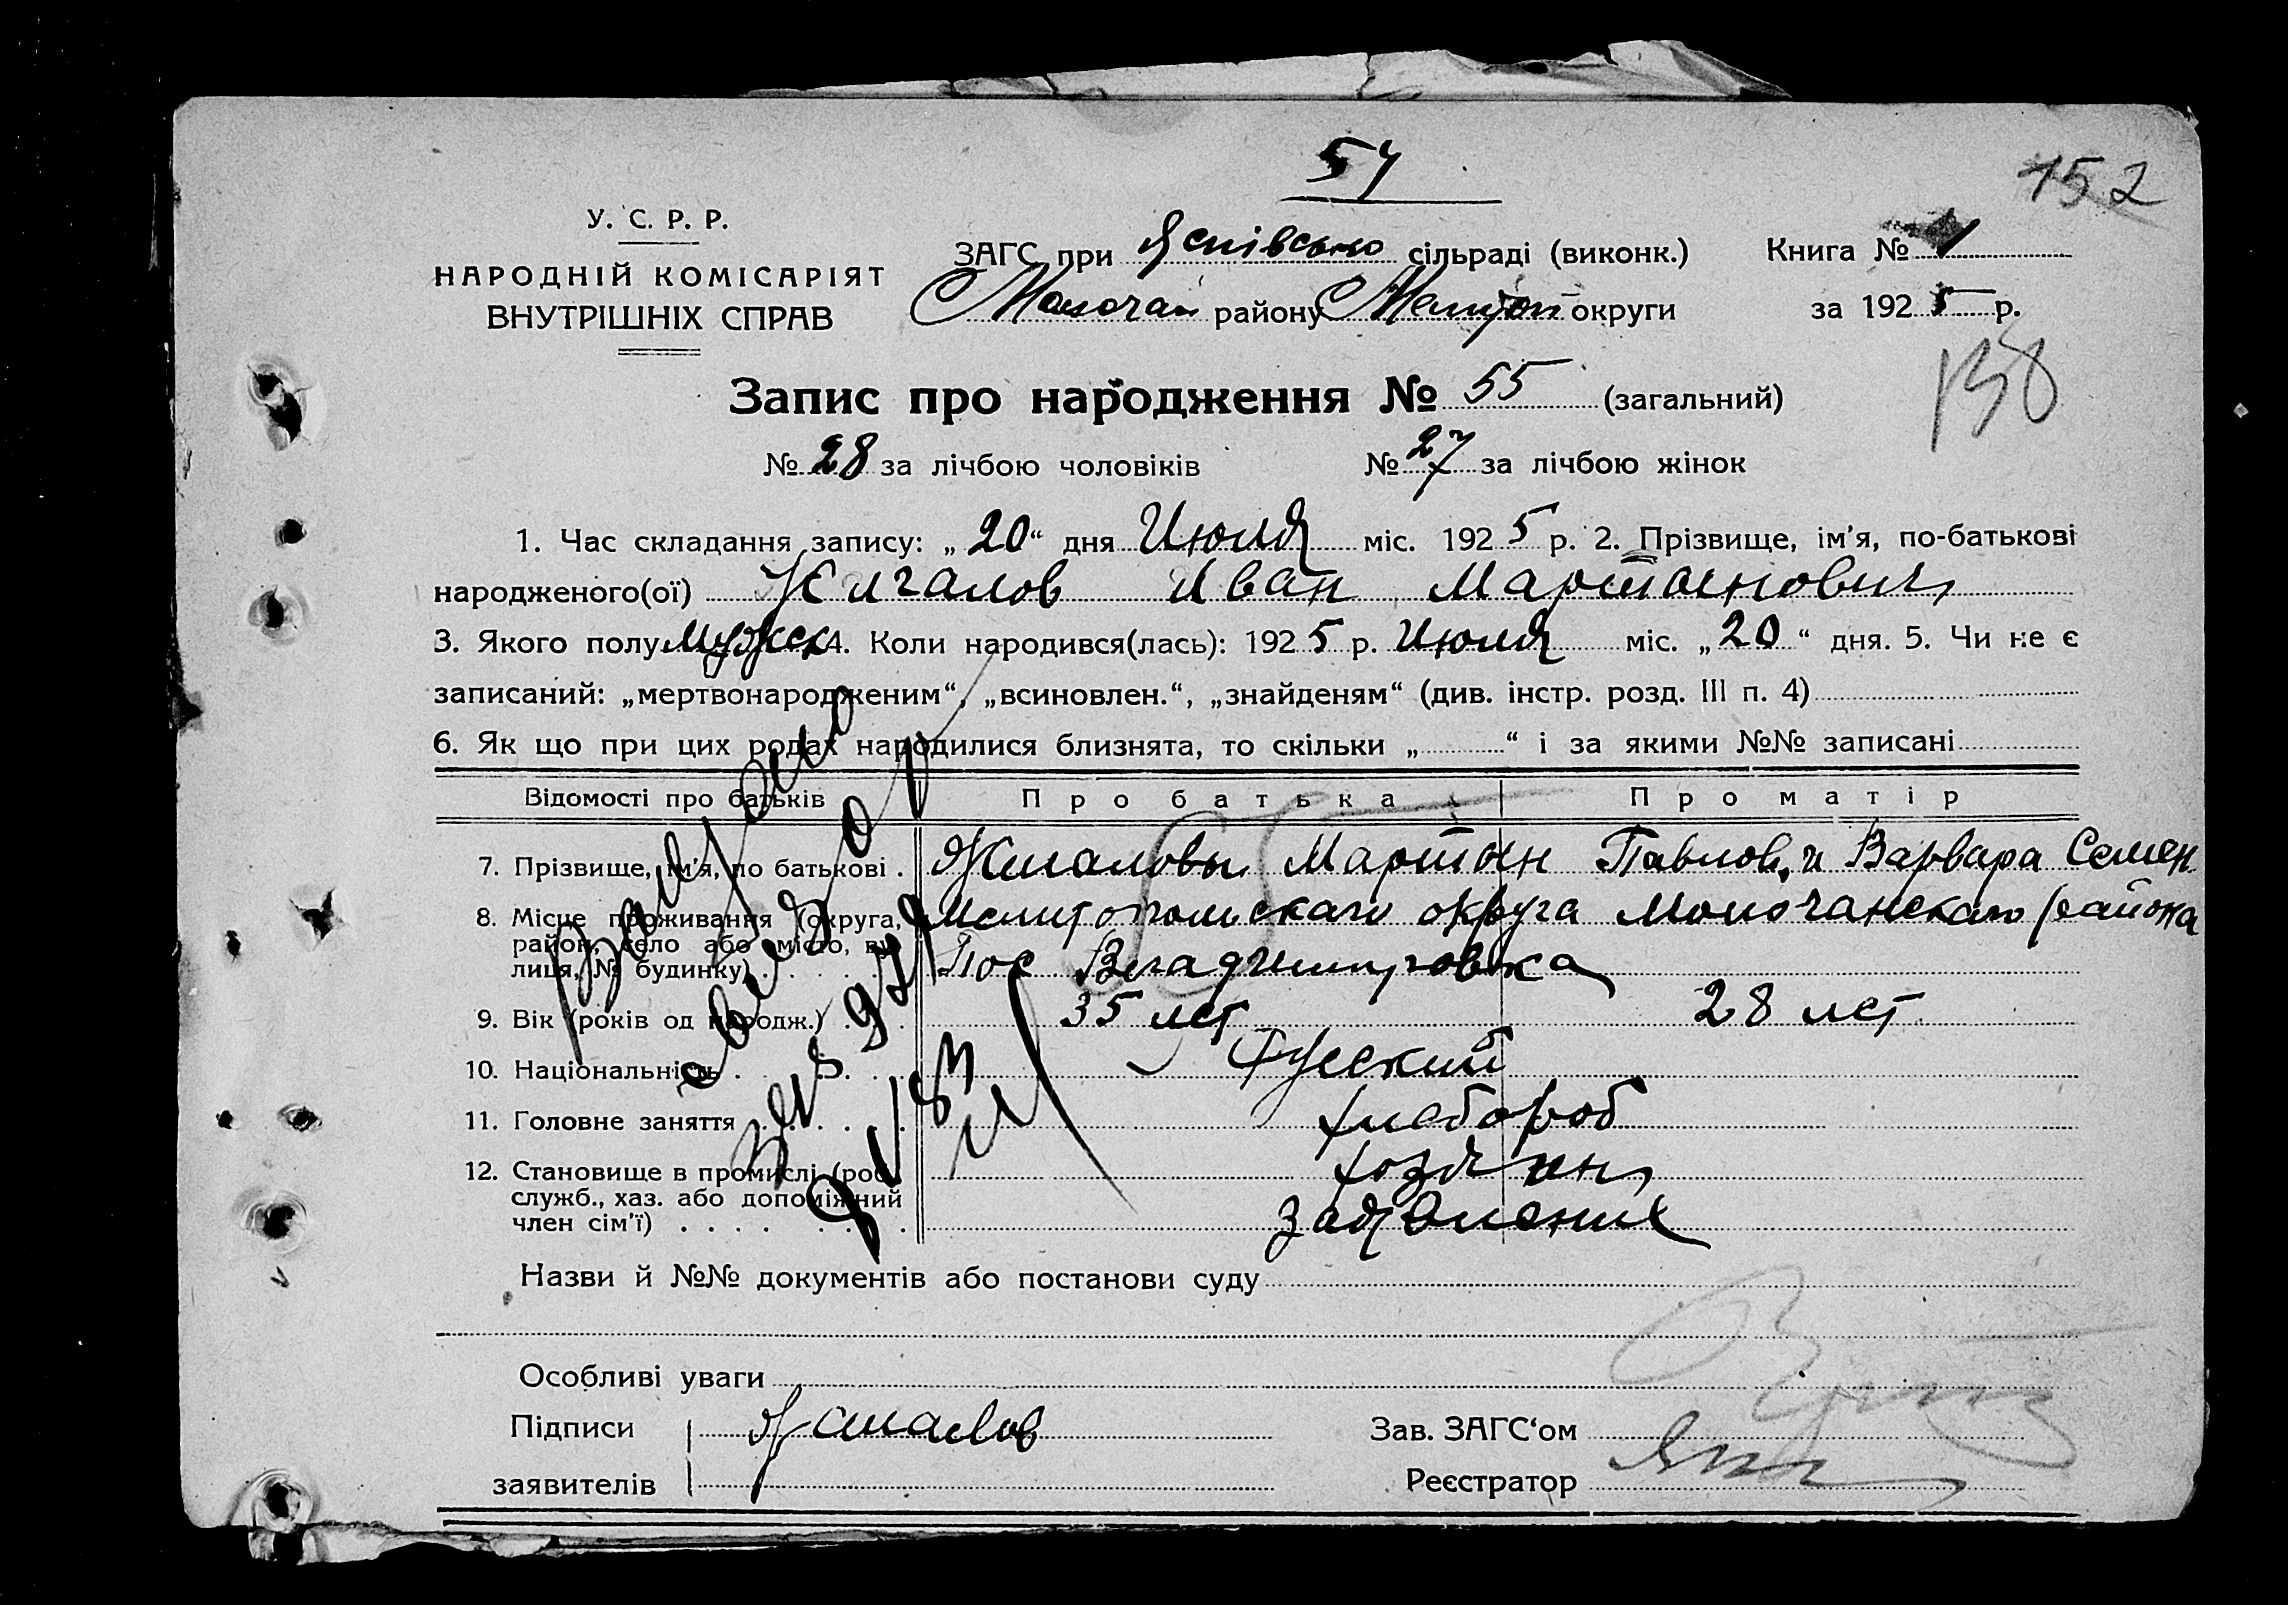 57
152
У. С. Р. Р.
НАРОДНІЙ КОМІСАРІЯТ
ВНУТРІШНІХ СПРАВ
ЗАГС при сільраді (виконк.) Книга № 1
Молочан району Мелитоп округи за 1925 р.
138
Запис про народження № 55 (загальний)
№ 28 за лічбою чоловіків № 27 за лічбою жінок
1. Час складання запису: „20“ дня Июля міс. 1925 р. 2. Прізвище, ім'я, по-батькові
народженого(ої) Иван Мартынович
3. Якого полу мужск 4. Коли народився(лась): 1925 р. Июля міс. „20“ дня. 5. Чи не є
записаний: „мертвонародженим“, „всиновлен.“, „знайденям“ (див. інстр. розд. III п. 4)
6. Як що при цих родах народилися близнята, то скільки „ “ і за якими №№ записані
Відомості про батьків Про батька Про матір
7. Прізвище, ім'я, по батькові . Мартын Павлов. и Варвара Семен
8. Місце проживання (округа, Мелитопольскаго округа Молочанскаго района
район, село або місто, ву-
лиця, № будинку) . Пос Владимировка
9. Вік (років од народж.) . 35 лет 28 лет
10. Національність . Русский
11. Головне заняття . хлебороб
12. Становище в промислі (роб., хозяин
служб., хаз. або допоміжний
член сім'ї) .
Назви й №№ документів або постанови суду
Особливі уваги
Підписи
заявителів
Зав. ЗАГС'ом
Реєстратор